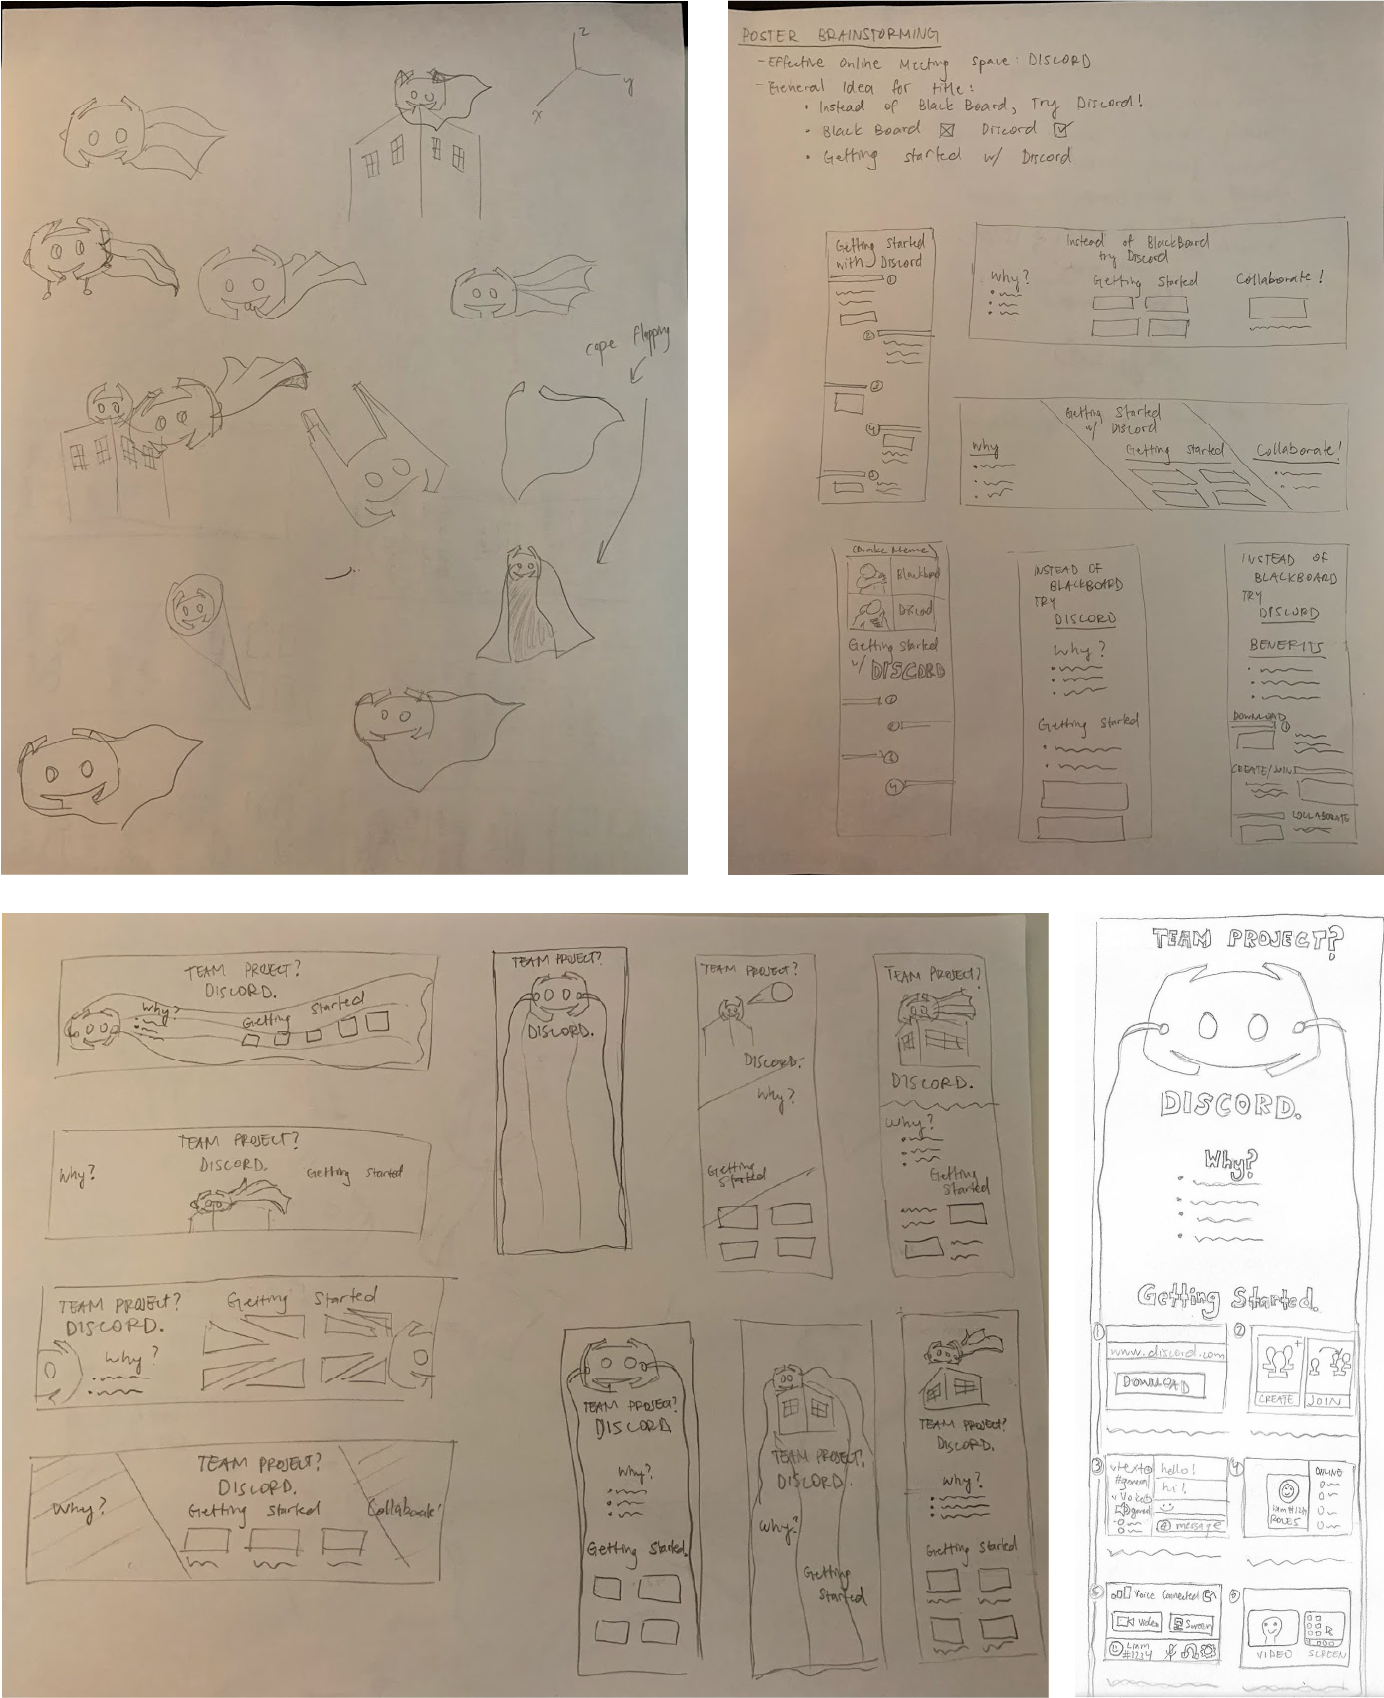 z
y
x
cape flapping
POSTER BRAINSTORMING
- Effective Online Meeting Space: DISCORD
- General Idea for title:
• Instead of Black Board, Try Discord!
• Black Board ☒ Discord ☑
• Getting started w/ Discord
Getting Started
with Discord
1
2
3
4
5
Instead of BlackBoard
try Discord
Why?
Getting Started
Collaborate!
Getting Started
w/ Discord
Why
Getting Started
Collaborate!
(Drake Meme)
Blackboard
Discord
Getting Started
w/ DISCORD
1
2
3
4
INSTEAD OF
BLACKBOARD
TRY
DISCORD
Why?
Getting Started
INSTEAD OF
BLACKBOARD
TRY
DISCORD
BENEFITS
DOWNLOAD
1
CREATE/JOIN
COLLABORATE
TEAM PROJECT?
DISCORD.
Why?
Getting Started
TEAM PROJECT?
DISCORD.
TEAM PROJECT?
DISCORD.
Why?
Getting
Started
TEAM PROJECT?
DISCORD.
Why?
Getting
Started
TEAM PROJECT?
DISCORD.
Why?
Getting Started
TEAM PROJECT?
DISCORD.
Why?
Getting Started
TEAM PROJECT?
DISCORD.
Why?
Getting Started
Collaborate!
TEAM PROJECT?
DISCORD
Why?
Getting Started.
TEAM PROJECT?
DISCORD.
Why?
Getting
Started
TEAM PROJECT?
DISCORD.
Why?
Getting Started
TEAM PROJECT?
DISCORD.
Why?
Getting Started.
1
www.discord.com
DOWNLOAD
2
CREATE JOIN
3
v Text
#general
v Voice
general
hello!
hi!
@ message
4
ROLES
ONLINE
5
Voice Connected
Video
Screen
Liam
#1214
6
VIDEO SCREEN